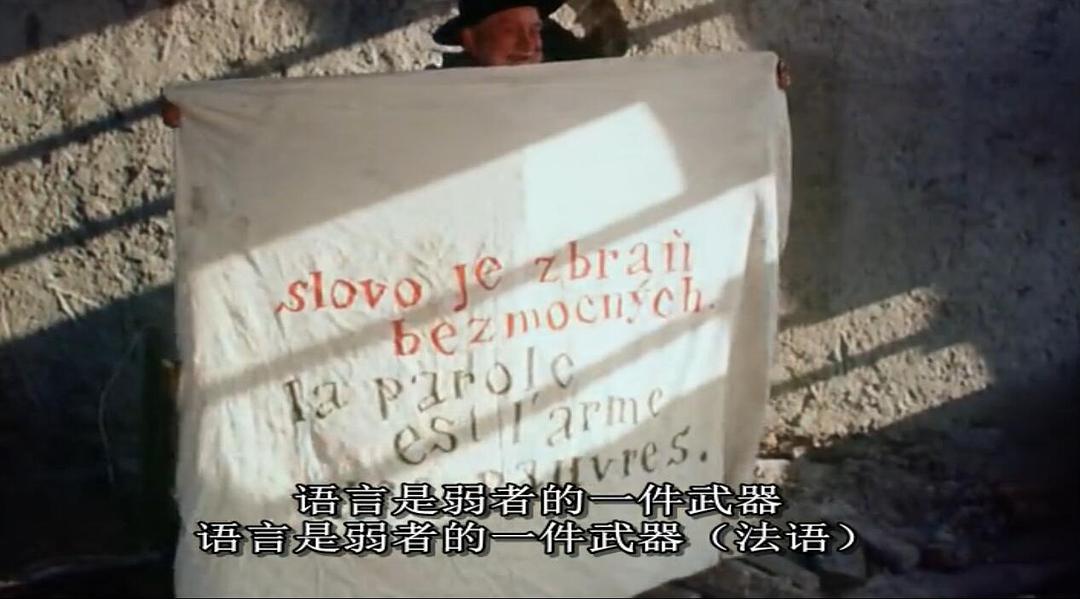 slovo je zbraň
bezmocných.
la parole
est l'arme
pauvres.
语言是弱者的一件武器
语言是弱者的一件武器（法语）